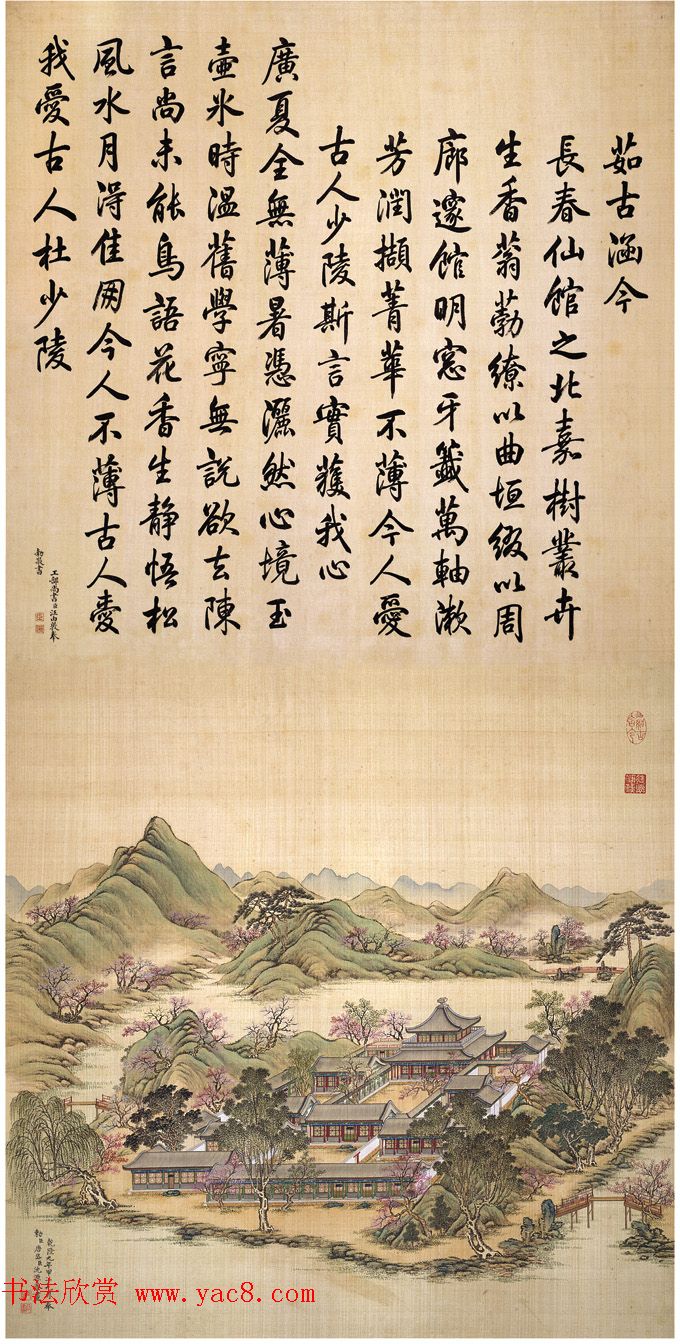 茹古涵今
長春仙館之北嘉樹叢卉
生香蓊葧繚以曲垣綴以周
廊邃館明窓牙籤萬軸漱
芳潤擷菁華不薄今人愛
古人少陵斯言實獲我心
廣夏全無薄暑憑灑然心境玉
壺氷時溫舊學寧無說欲去陳
言尚未能鳥語花香生静悟松
風水月淂佳朋今人不薄古人愛
我愛古人杜少陵
工部尚書臣汪由敦奉
勅敬書
乾隆九年甲
勅臣唐岱臣沈源
书法欣赏 www.yac8.com